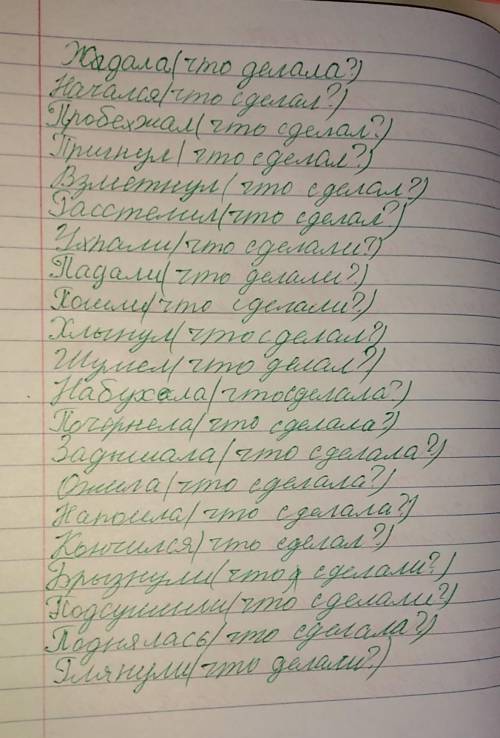 Ждала(что делала?)
Начался(что сделал?)
Пробежал(что сделал?)
Пригнул(что сделал?)
Взметнул(что сделал?)
Расстелил(что сделал?)
Убрали(что сделали?)
Падали(что делали?)
Пошли(что сделали?)
Хлынул(что сделал?)
Шумел(что делал?)
Набухла(что сделала?)
Почернела(что сделала?)
Задышала(что сделала?)
Ожила(что сделала?)
Напоила(что сделала?)
Кончился(что сделал?)
Брызнули(что сделали?)
Подсушили(что сделали?)
Поднялась(что сделала?)
Глянули(что делали?)